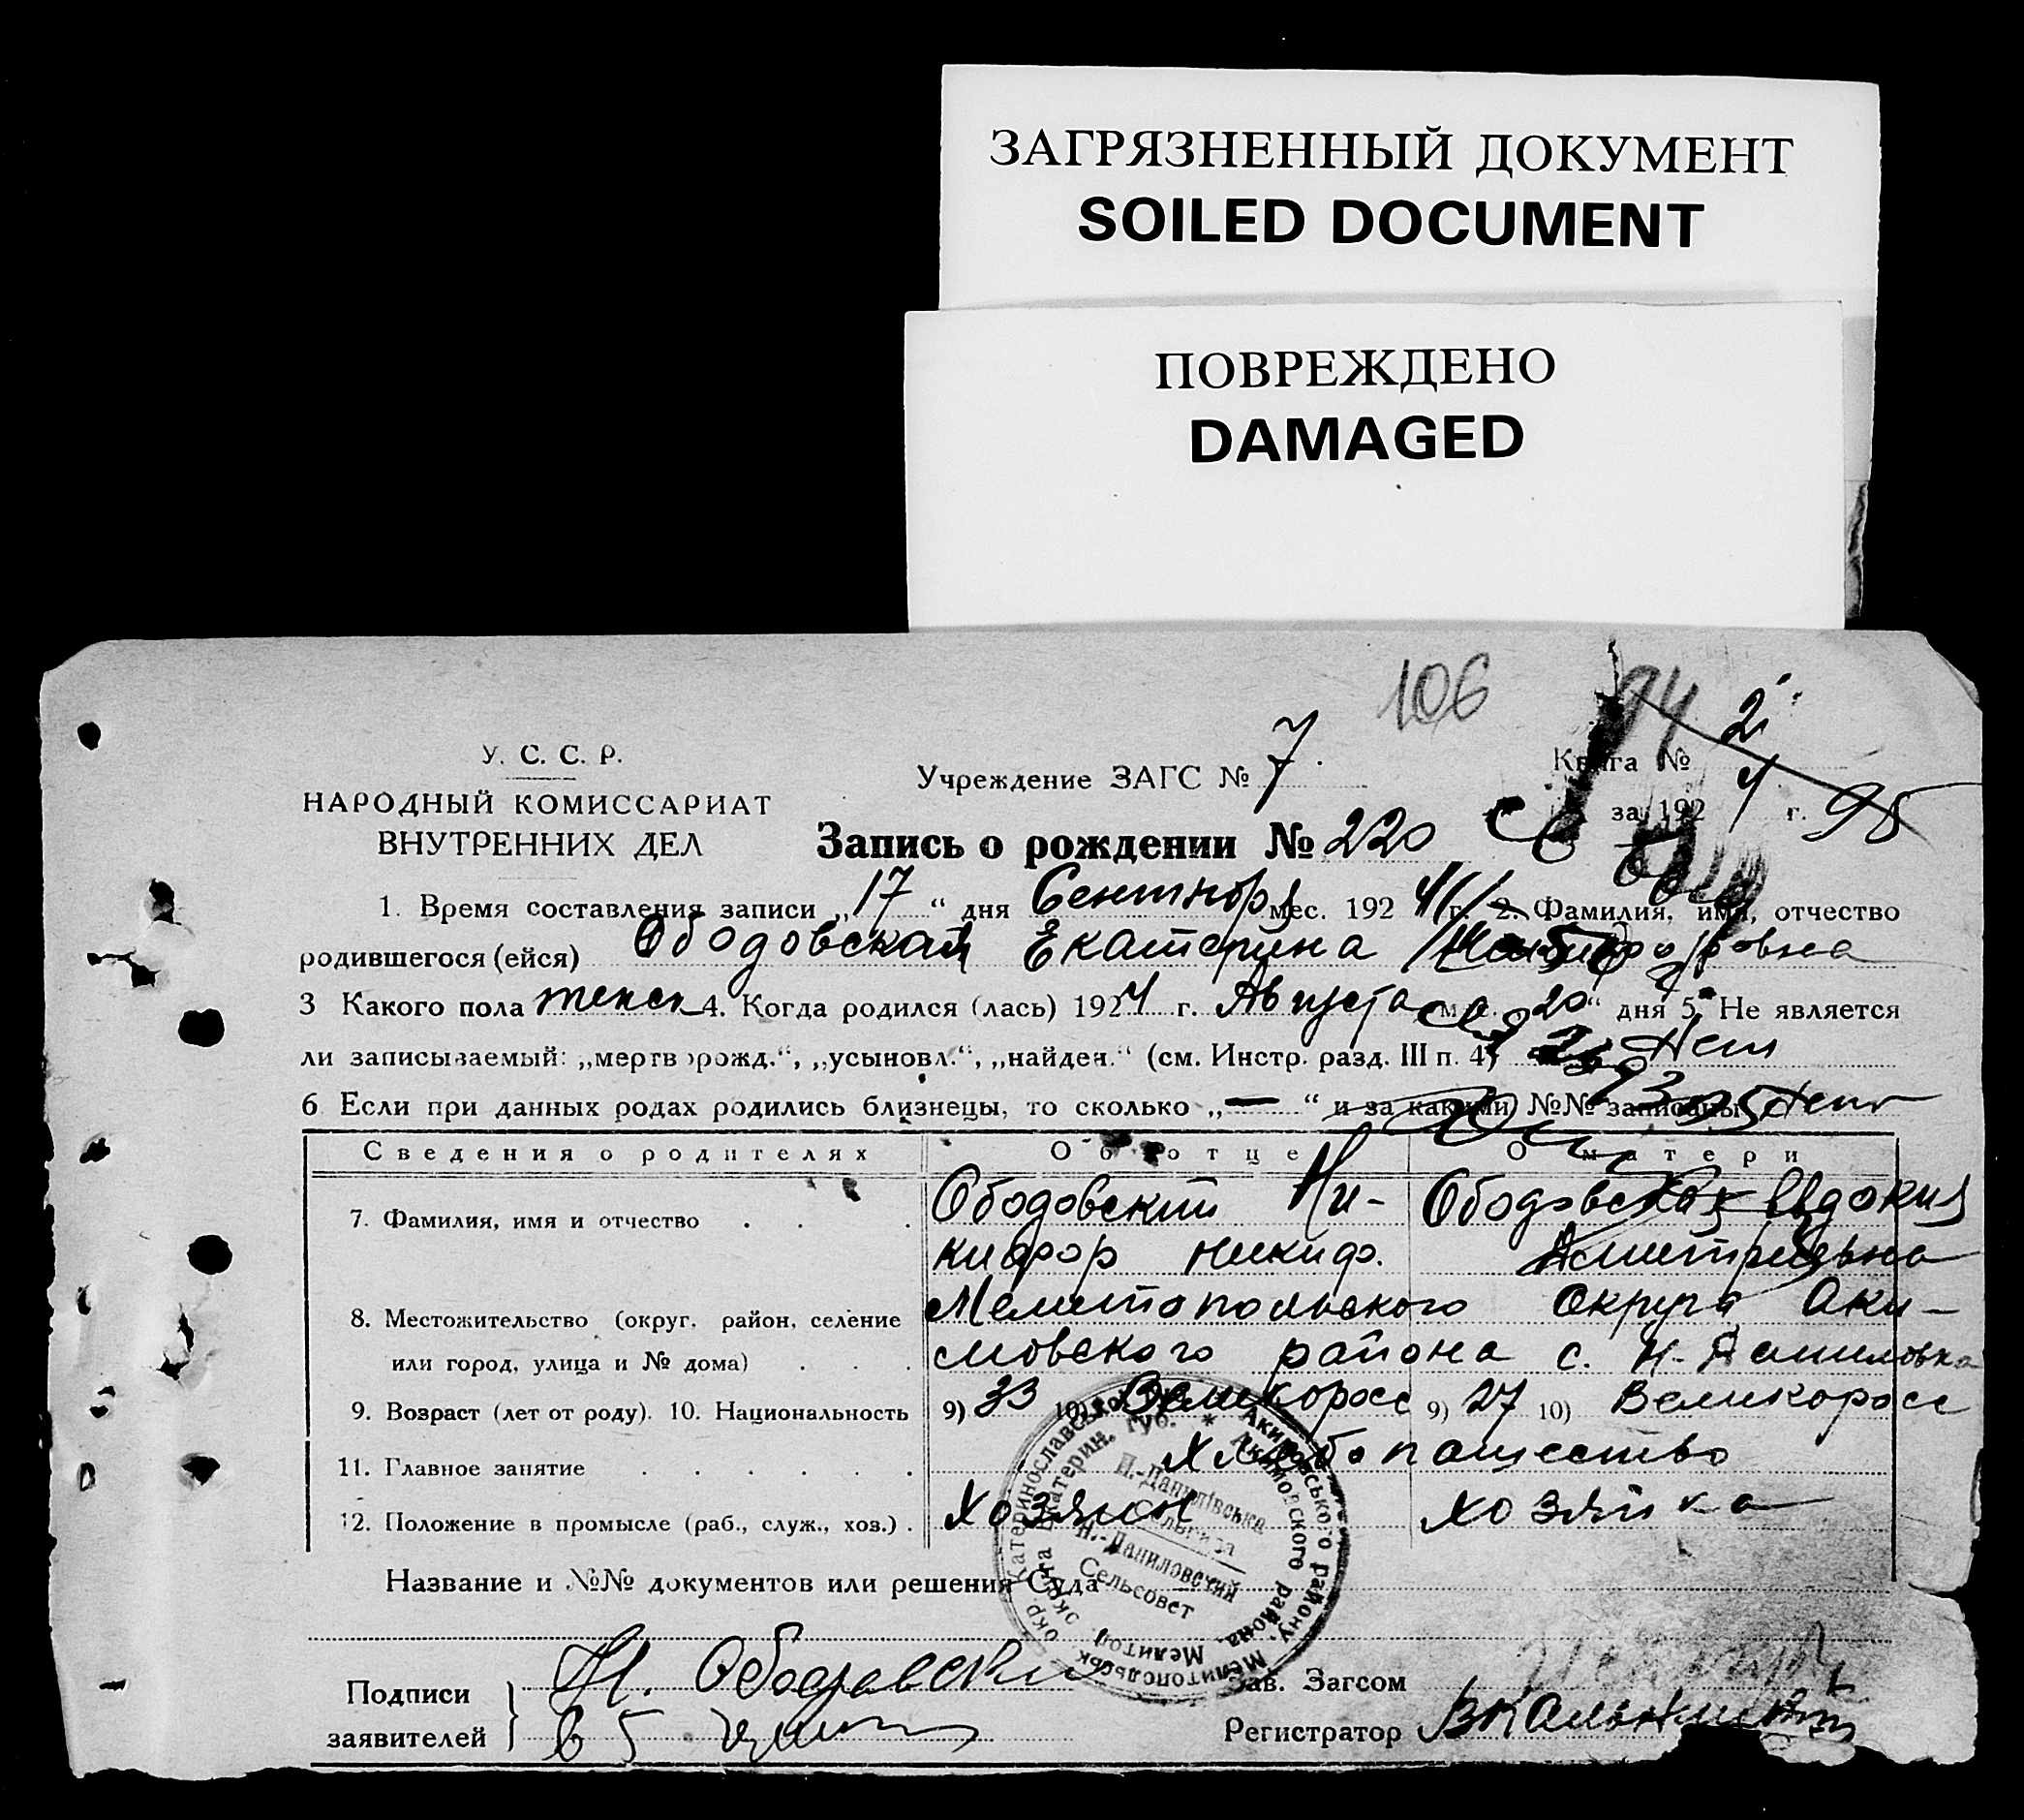 ЗАГРЯЗНЕННЫЙ ДОКУМЕНТ
SOILED DOCUMENT
ПОВРЕЖДЕНО
DAMAGED
106
94
У. С. С. Р.
НАРОДНЫЙ КОМИССАРИАТ
ВНУТРЕННИХ ДЕЛ
Учреждение ЗАГС № 7
Книга № 2
за 1924 г. 95
Запись о рождении № 220
1. Время составления записи „17“ дня Сентября мес. 1924 г. 2. Фамилия, имя, отчество
родившегося (ейся) Ободовская Екатерина
3 Какого пола женск 4. Когда родился (лась) 1924 г. Августа мес. 20“ дня 5. Не является
ли записываемый: „мертворожд.“, „усыновл.“, „найден.“ (см. Инстр. разд. III п. 4) Нет
6 Если при данных родах родились близнецы, то сколько „—“ и за какими №№ записаны Нет
Сведения о родителях
Об отце
О матери
7. Фамилия, имя и отчество
Ободовский Ни-
кифор Никиф.
Ободовская Евдокия
Дмитриевна
8. Местожительство (округ, район, селение
или город, улица и № дома)
Мелитопольского Округа Аки-
мовского района с. Н-Даниловка
9. Возраст (лет от роду). 10. Национальность 9) 33 10) Великоросс 9) 27 10) Великоросс
11. Главное занятие Хлебопашество
12. Положение в промысле (раб., служ., хоз.). Хозяин хозяйка
Название и №№ документов или решения Суда
Н.-Данилівська
Сільрада
Н.-Даниловский
Сельсовет
Подписи
заявителей
Н. Ободовский
Зав. Загсом
Регистратор